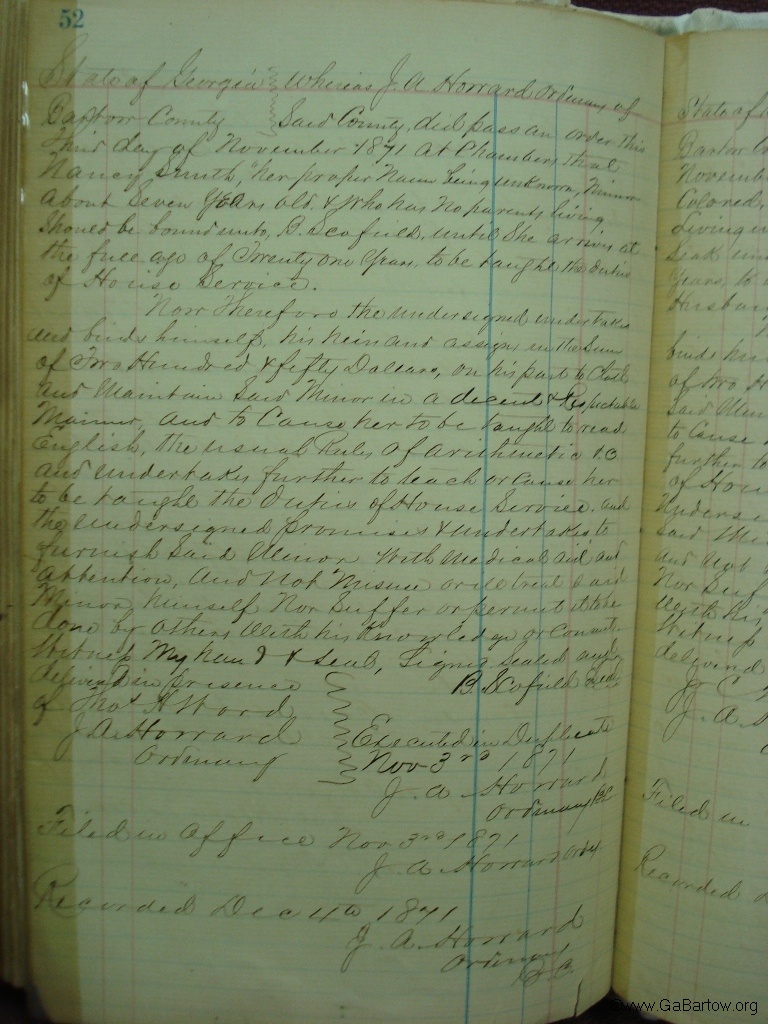 52
State of Georgia Whereas J. A Howard Ordinary of
Bartow County Said County, did pass an order this
Third day of November 1871 at Chambers that
Nancy Smith, "her proper Name being unknown, Minor
about Seven Years old & who has No parents living
Should be bound unto, B. Scofield, until She arrives at
the full age of Twenty one Years, to be taught the duties
of House Service.
Now Therefore the undersigned undertakes
and binds himself, his heirs and assigns in the Sum
of Two Hundred & fifty Dollars, on his part to Cloth
and Maintain Said Minor in a decent & Respectable
Manner, and to Cause her to be taught to read
English, the usual Rules of arithmetic &c
and undertakes further to teach or cause her
to be taught the Duties of House Service. and
the undersigned promises & undertakes to
furnish Said Minor With Medical aid and
attention, and Not Misuse or ill treat Said
Minor himself Nor Suffer or permit it to be
done by others With his Knowledge or Consent
Witness My hand & Seal, Signed Sealed and
delivered in presence B. Scofield Seal
of Thos H Word
J A Howard Executed in Duplicate
Ordinary Nov 3rd 1871
J. A Howard
Ordinary BC
Filed in Office Nov 3rd 1871
J. A Howard Ordy
Recorded Dec 4th 1871
J. A. Howard
Ordinary
B. C.
State of
Bartow Co
Novemb
Colored,
Living
years, to
Husban
binds him
of two H
Said Min
to Cause
further to
of Hous
Undersi
Said Mi
and Not
Nor Suf
With his
Witness
delivered
J. C
J. A
Filed in
Recorded
©www.GaBartow.org